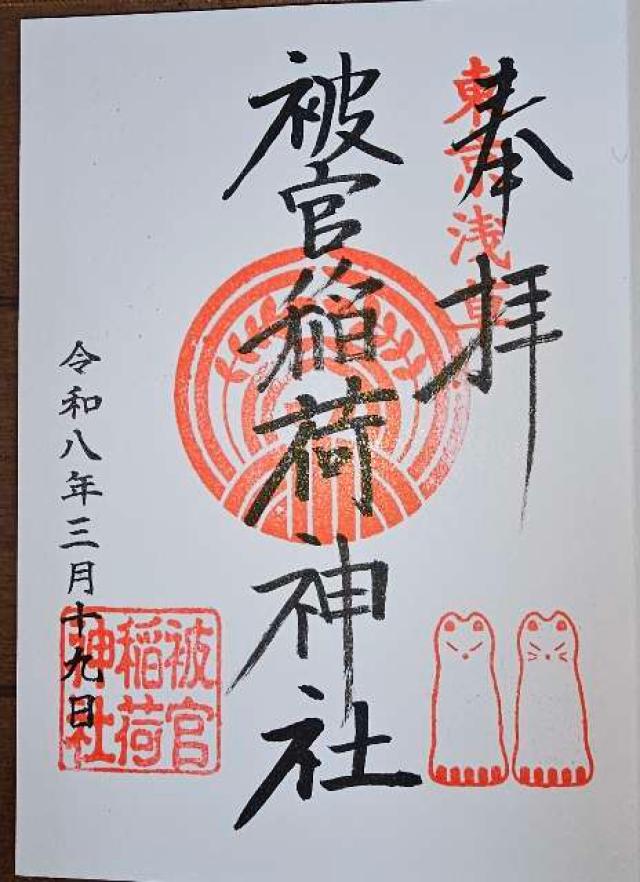 奉拝
東京浅草
被官稲荷神社
令和八年三月十九日
被官
稲荷
神社